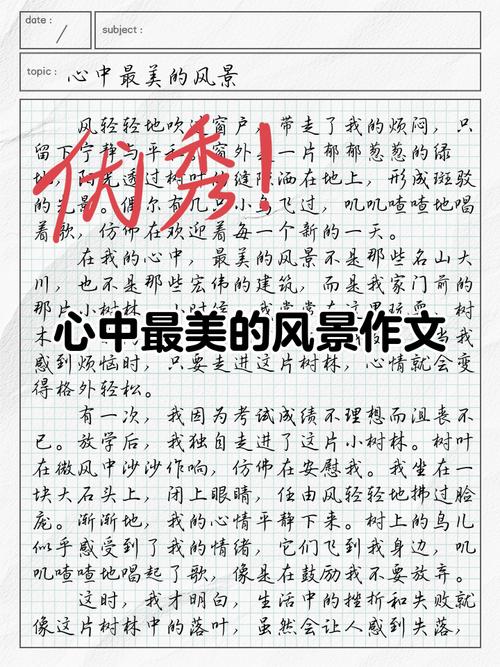 date :
subject :
topic : 心中最美的风景
风轻轻地吹过窗户，带走了我的烦闷，只
留下宁静与平和。窗外是一片郁郁葱葱的绿
地，阳光透过树叶的缝隙洒在地上，形成斑驳
的光景。偶尔有几只小鸟飞过，叽叽喳喳地唱
着歌，仿佛在欢迎着每一个新的一天。
优秀！
在我的心中，最美的风景不是那些名山大
川，也不是那些宏伟的建筑，而是我家门前的
那片小树林。小时候，我常常在这里玩耍，树
木
心中最美的风景作文
当我
感到烦恼时，只要走进这片树林，心情就会变
得格外轻松。
有一次，我因为考试成绩不理想而沮丧不
已。放学后，我独自走进了这片小树林。树叶
在微风中沙沙作响，仿佛在安慰我。我坐在一
块大石头上，闭上眼睛，任由风轻轻地拂过脸
庞。渐渐地，我的心情平静下来。树上的鸟儿
似乎感受到了我的情绪，它们飞到我身边，叽
叽喳喳地唱起了歌，像是在鼓励我不要放弃。
这时，我才明白，生活中的挫折和失败就
像这片树林中的落叶，虽然会让人感到失落，